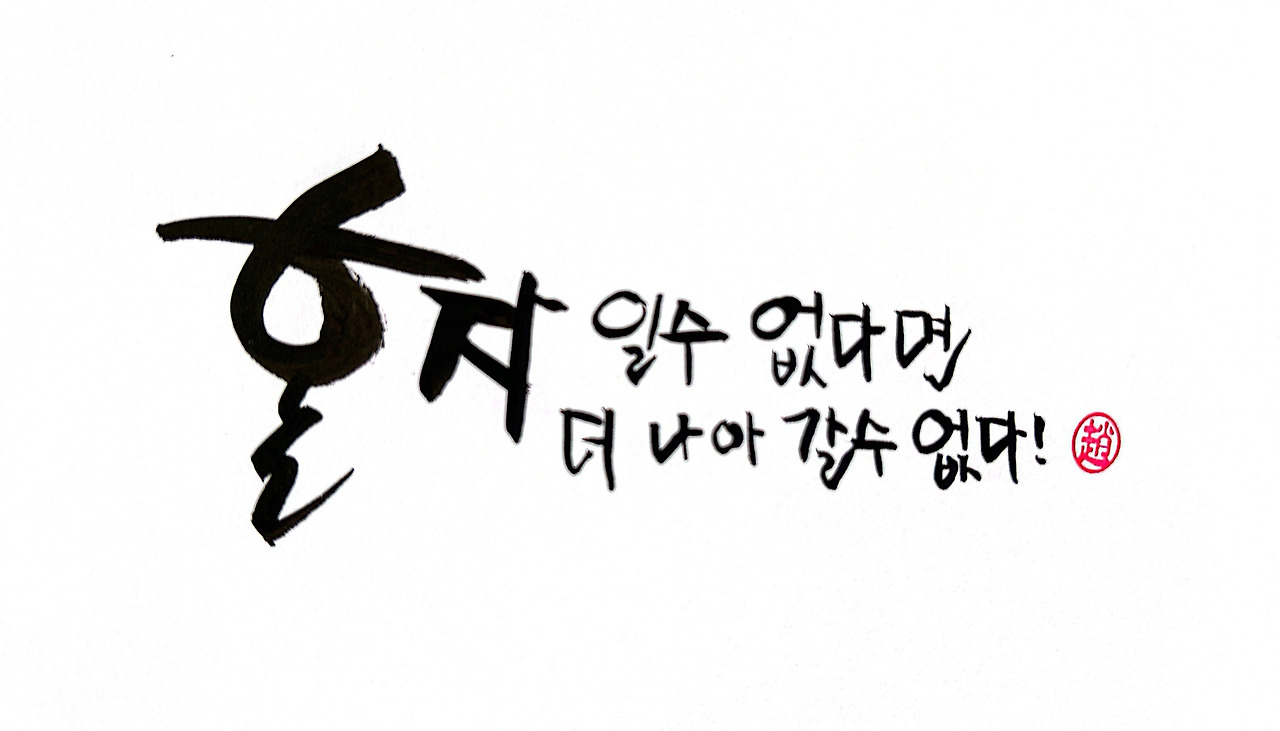 혼자 일수 없다면
더 나아 갈수 없다!
趙